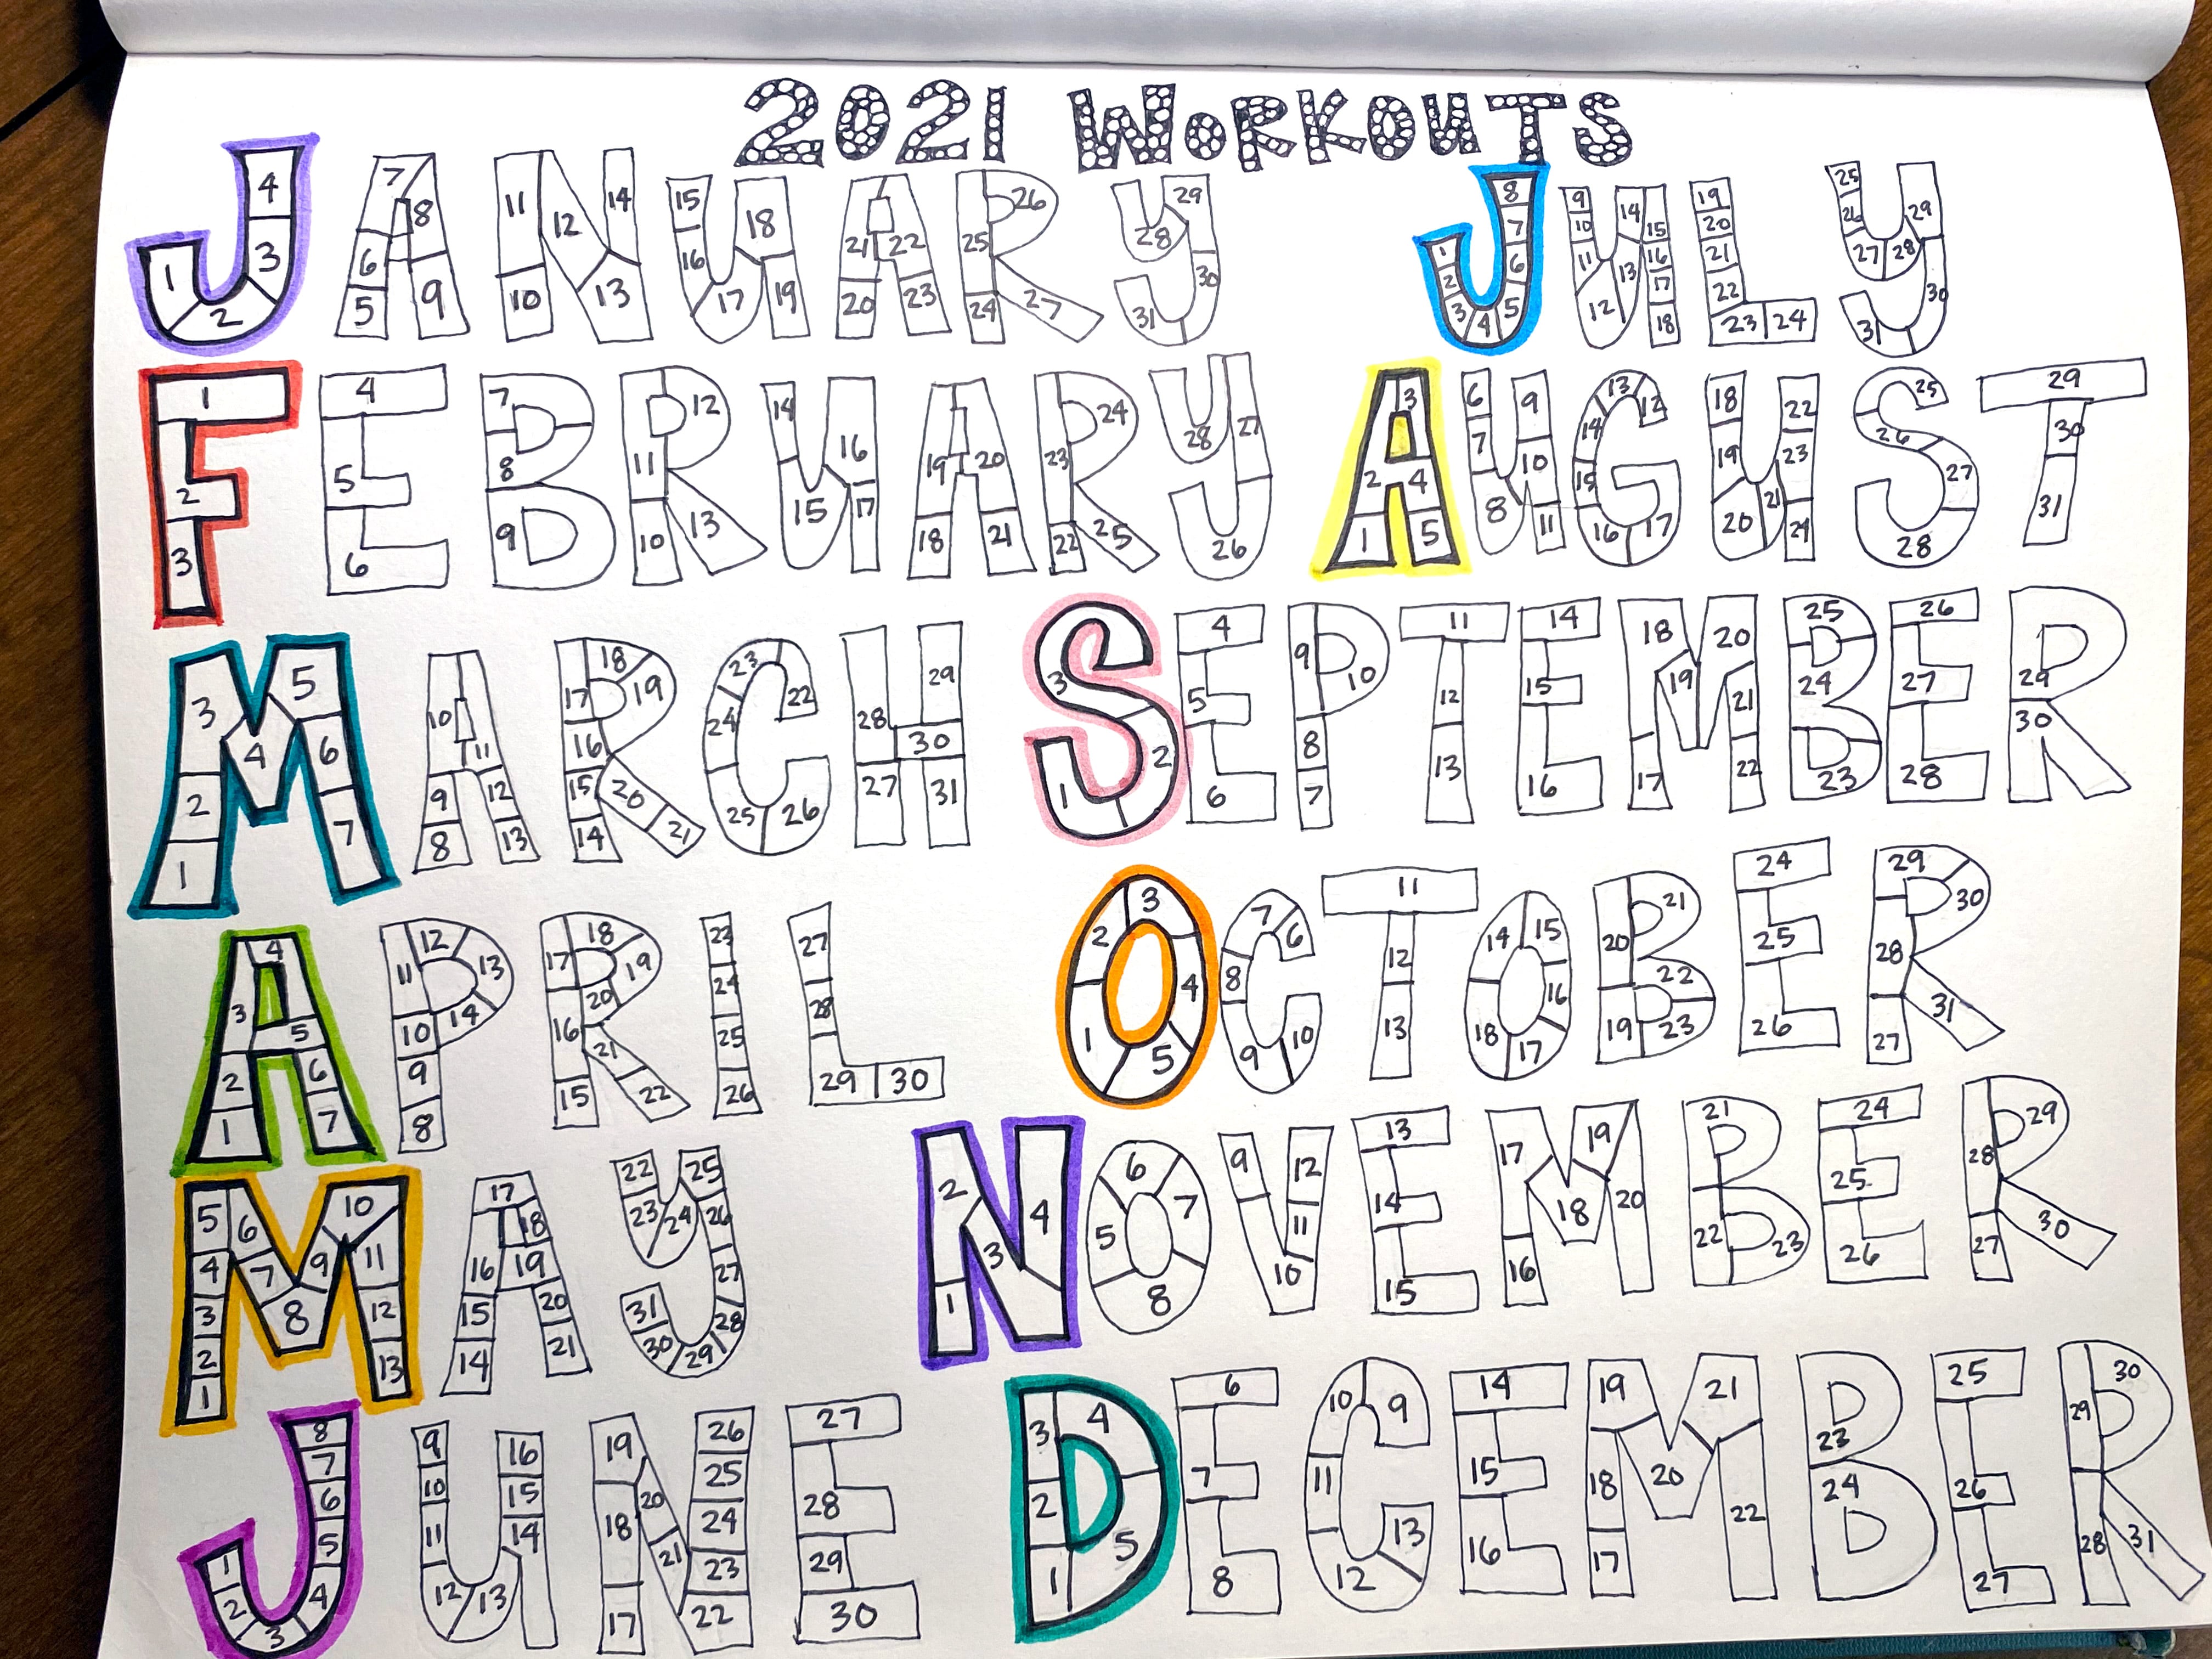 2021 WORKOUTS
JANUARY
1 2 3 4 5 6 7 8 9 10 11 12 13 14 15 16 17 18 19 20 21 22 23 24 25 26 27 28 29 30 31
JULY
1 2 3 4 5 6 7 8 9 10 11 12 13 14 15 16 17 18 19 20 21 22 23 24 25 26 27 28 29 30 31
FEBRUARY
1 2 3 4 5 6 7 8 9 10 11 12 13 14 15 16 17 18 19 20 21 22 23 24 25 26 27 28
AUGUST
1 2 3 4 5 6 7 8 9 10 11 12 13 14 15 16 17 18 19 20 21 22 23 29 25 26 27 28 29 30 31
MARCH
1 2 3 4 5 6 7 8 9 10 11 12 13 14 15 16 17 18 19 20 21 22 23 24 25 26 27 28 29 30 31
SEPTEMBER
1 2 3 4 5 6 7 8 9 10 11 12 13 14 15 16 17 18 19 20 21 22 23 24 25 26 27 28 29 30
APRIL
1 2 3 4 5 6 7 8 9 10 11 12 13 14 15 16 17 18 19 20 21 22 23 24 25 26 27 28 29 30
OCTOBER
1 2 3 4 5 6 7 8 9 10 11 12 13 14 15 16 17 18 19 20 21 22 23 24 25 26 27 28 29 30 31
MAY
1 2 3 4 5 6 7 8 9 10 11 12 13 14 15 16 17 18 19 20 21 22 23 24 25 26 27 28 29 30 31
NOVEMBER
1 2 3 4 5 6 7 8 9 10 11 12 13 14 15 16 17 18 19 20 21 22 23 24 25 26 27 28 29 30
JUNE
1 2 3 4 5 6 7 8 9 10 11 12 13 14 15 16 17 18 19 20 21 22 23 24 25 26 27 28 29 30
DECEMBER
1 2 3 4 5 6 7 8 9 10 11 12 13 14 15 16 17 18 19 20 21 22 23 24 25 26 27 28 29 30 31